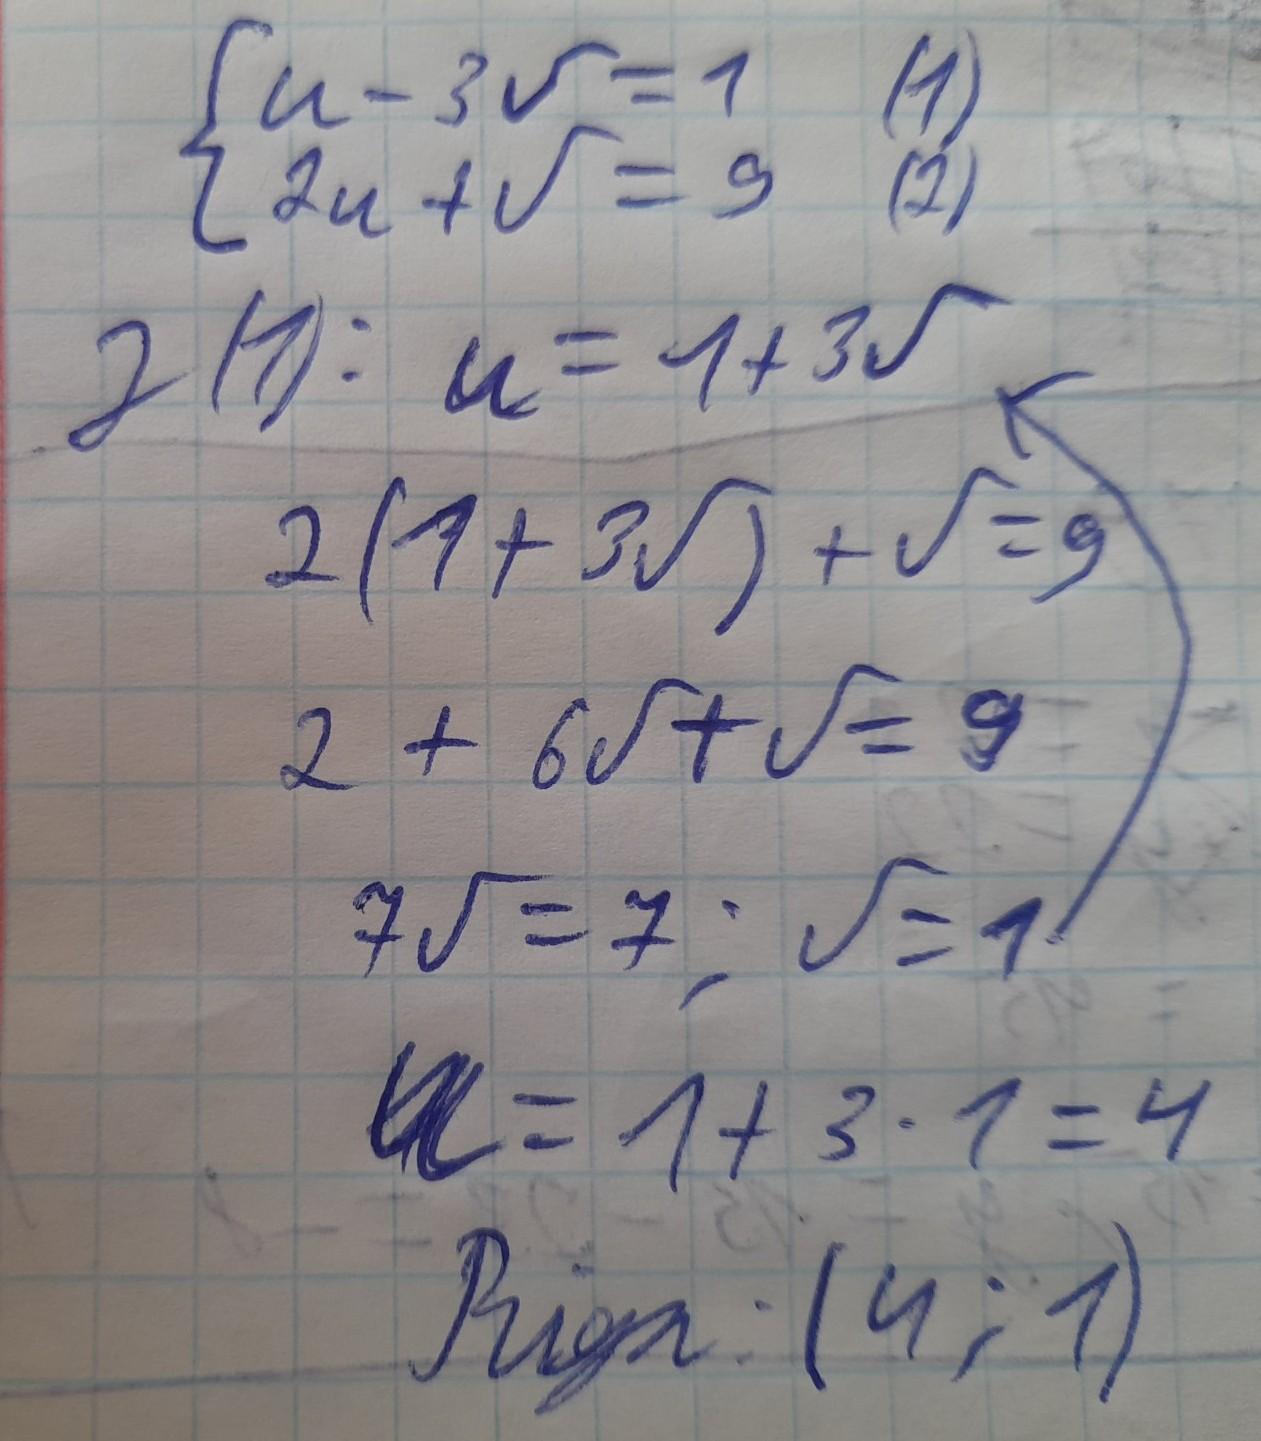 {u - 3v = 1 (1)
2u + v = 9 (2)
З (1): u = 1 + 3v
2(1 + 3v) + v = 9
2 + 6v + v = 9
7v = 7; v = 1
u = 1 + 3 · 1 = 4
Відп: (4; 1)